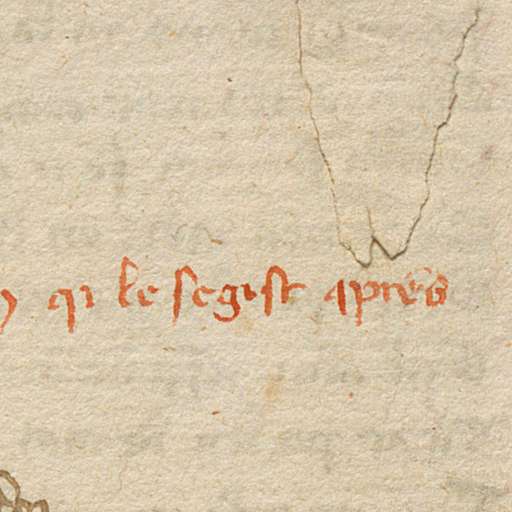 qi le segist apres